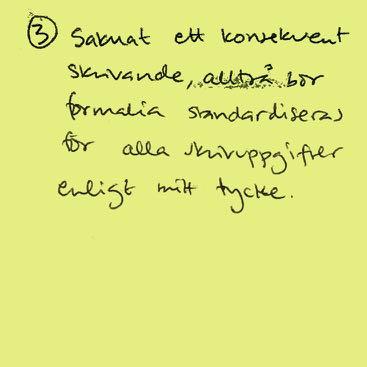 ③ Saknat ett konsekvent
skrivande, alltså bör
formalia standardiseras
för alla skrivuppgifter
enligt mitt tycke.